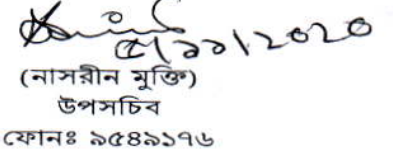 ৫/১১/২০২০
(নাসরীন মুক্তি)
উপসচিব
ফোনঃ ৯৫৪৯১৭৬